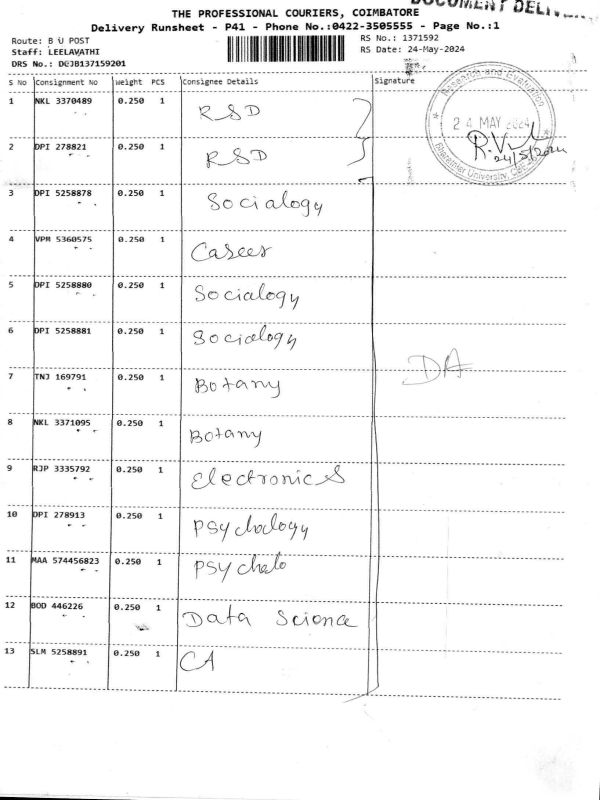 DOCUMENT DELIVE
THE PROFESSIONAL COURIERS, COIMBATORE
Delivery Runsheet - P41 - Phone No.:0422-3505555 - Page No.:1
Route: B U POST
RS No.: 1371592
Staff: LEELAVATHI
RS Date: 24-May-2024
DRS No.: DCJB137159201
S No Consignment No Weight PCS Consignee Details Signature
1 NKL 3370489 0.250 1 RSD
2 DPI 278821 0.250 1 RSD
Research and Evaluation
24 MAY 2024
24/5/2024
Bharathiar University, CBE-46
3 DPI 5258878 0.250 1 Socialogy
4 VPM 5360575 0.250 1 Career
5 DPI 5258880 0.250 1 Socialogy
6 DPI 5258881 0.250 1 Socialogy
DA
7 TNJ 169791 0.250 1 Botany
8 NKL 3371095 0.250 1 Botany
9 RJP 3335792 0.250 1 Electronics
10 DPI 278913 0.250 1 Psychology
11 MAA 574456823 0.250 1 Psycholo
12 BOD 446226 0.250 1 Data Science
13 SLM 5258891 0.250 1 CA